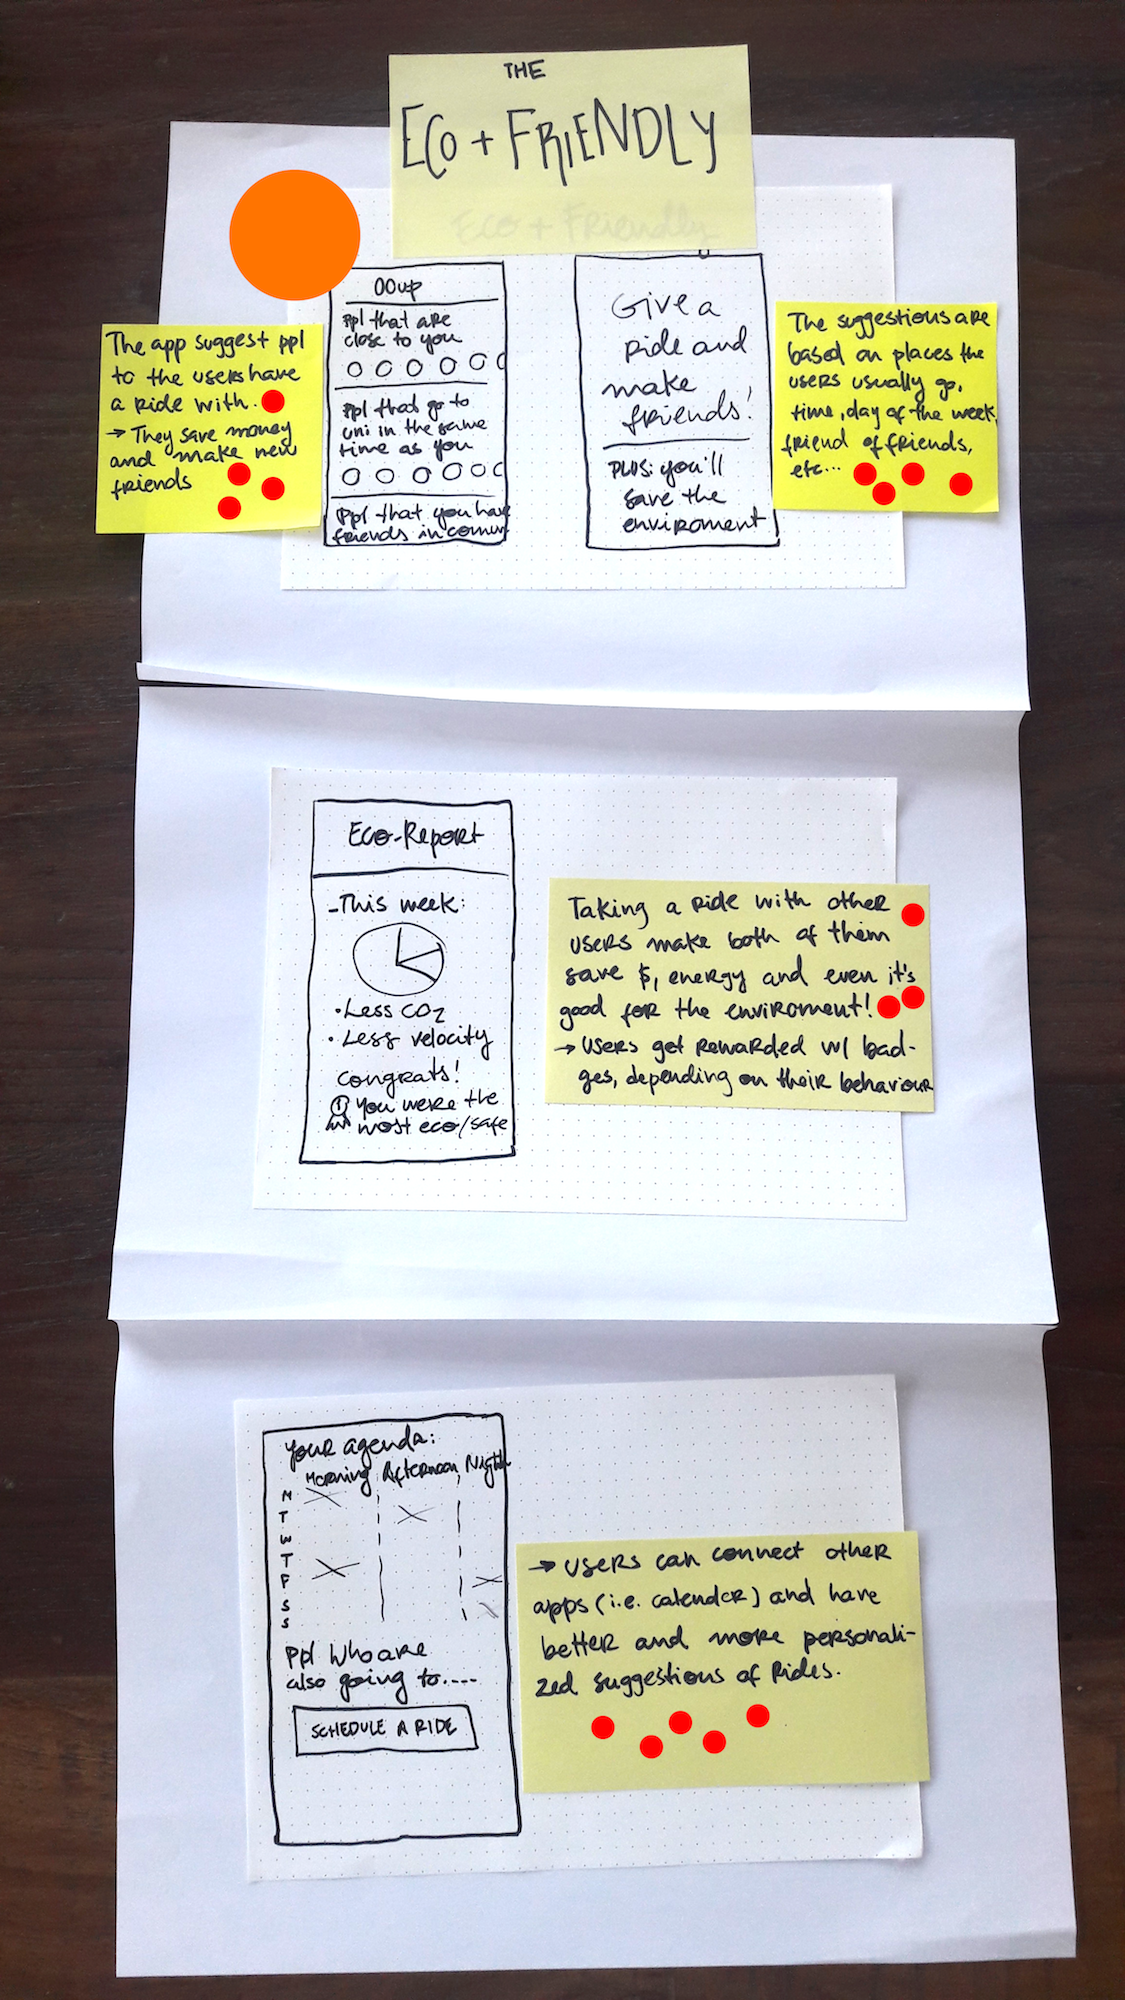 THE
ECO + FRIENDLY
Eco + Friendly
The app suggest ppl
to the users have
a ride with.
→ They save money
and make new
friends
00up
ppl that are
close to you
ppl that go to
uni in the same
time as you
ppl that you have
friends in comun
Give a
ride and
make
friends!
PLUS: you'll
save the
enviroment
The suggestions are
based on places the
users usually go,
time, day of the week,
friend of friends,
etc...
Eco-Report
-This week:
• Less CO2
• Less velocity
congrats!
1 You were the
most eco/safe
Taking a ride with other
users make both of them
save $, energy and even it's
good for the enviroment!
→ users get rewarded w/ bad-
ges, depending on their behaviour
Your agenda:
Morning Afternoon Night
M
T
W
T
F
S
S
Ppl who are
also going to....
SCHEDULE A RIDE
→ users can connect other
apps (i.e. calender) and have
better and more personali-
zed suggestions of rides.